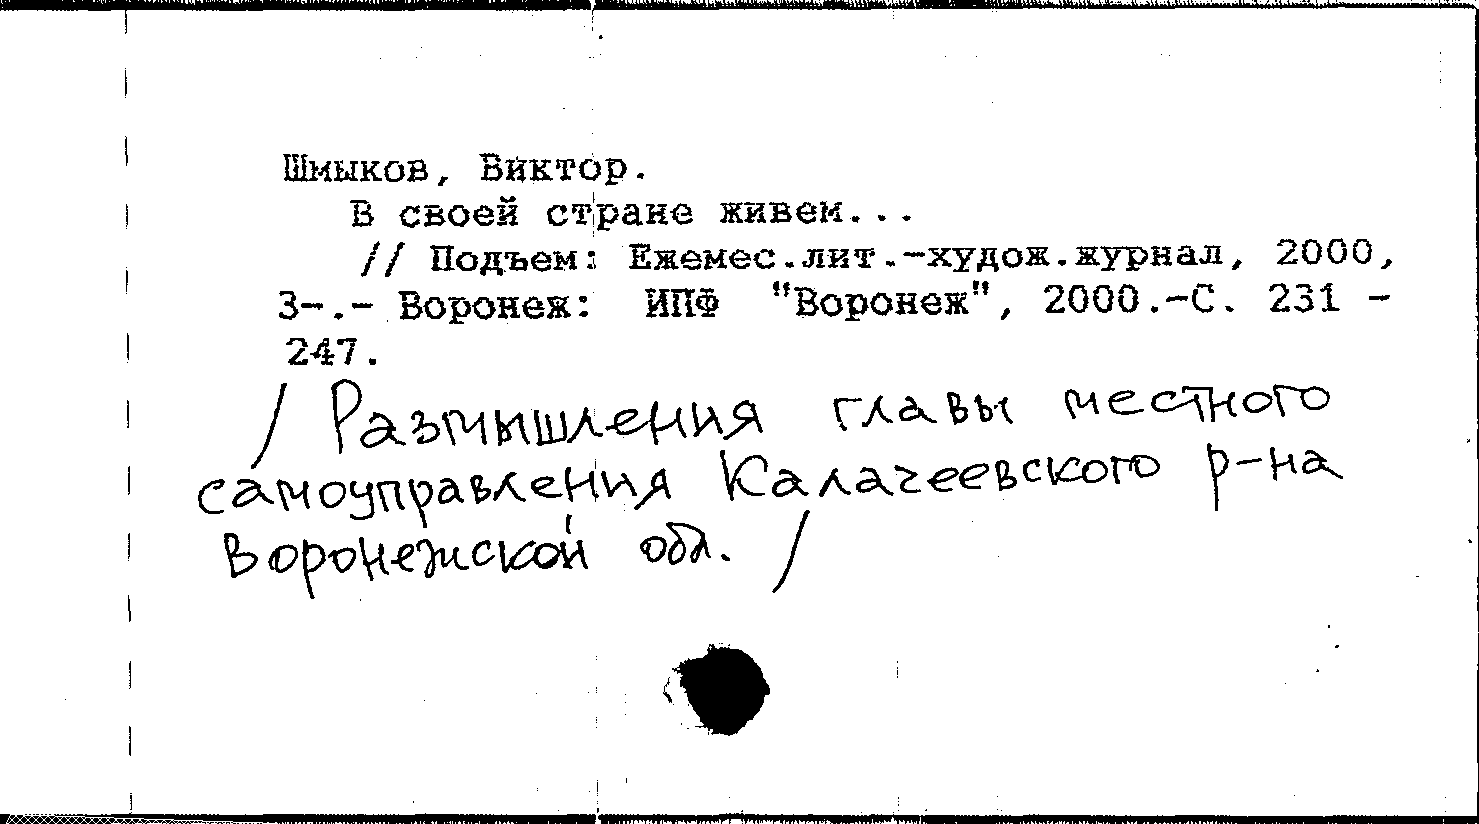 Шмыков, Виктор.
В своей стране живем...
// Подъем: Ежемес.лит.-худож.журнал, 2000,
3-.- Воронеж: ИПФ "Воронеж", 2000.-С. 231 -
247.
/ Размышления главы местного
самоуправления Калачеевского р-на
Воронежской обл. /